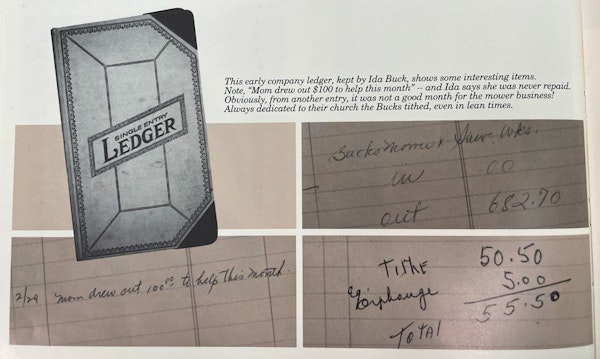 This early company ledger, kept by Ida Buck, shows some interesting items.
Note, "Mom drew out $100 to help this month" -- and Ida says she was never repaid.
Obviously, from another entry, it was not a good month for the mower business!
Always dedicated to their church the Bucks tithed, even in lean times.
SINGLE ENTRY
LEDGER
Bucks Mower & Saw Wks.
in 00
out 682.70
2/29 Mom drew out 100⁰⁰ to help this month.
TITHE 50.50
5.00
TOTAL 55.50